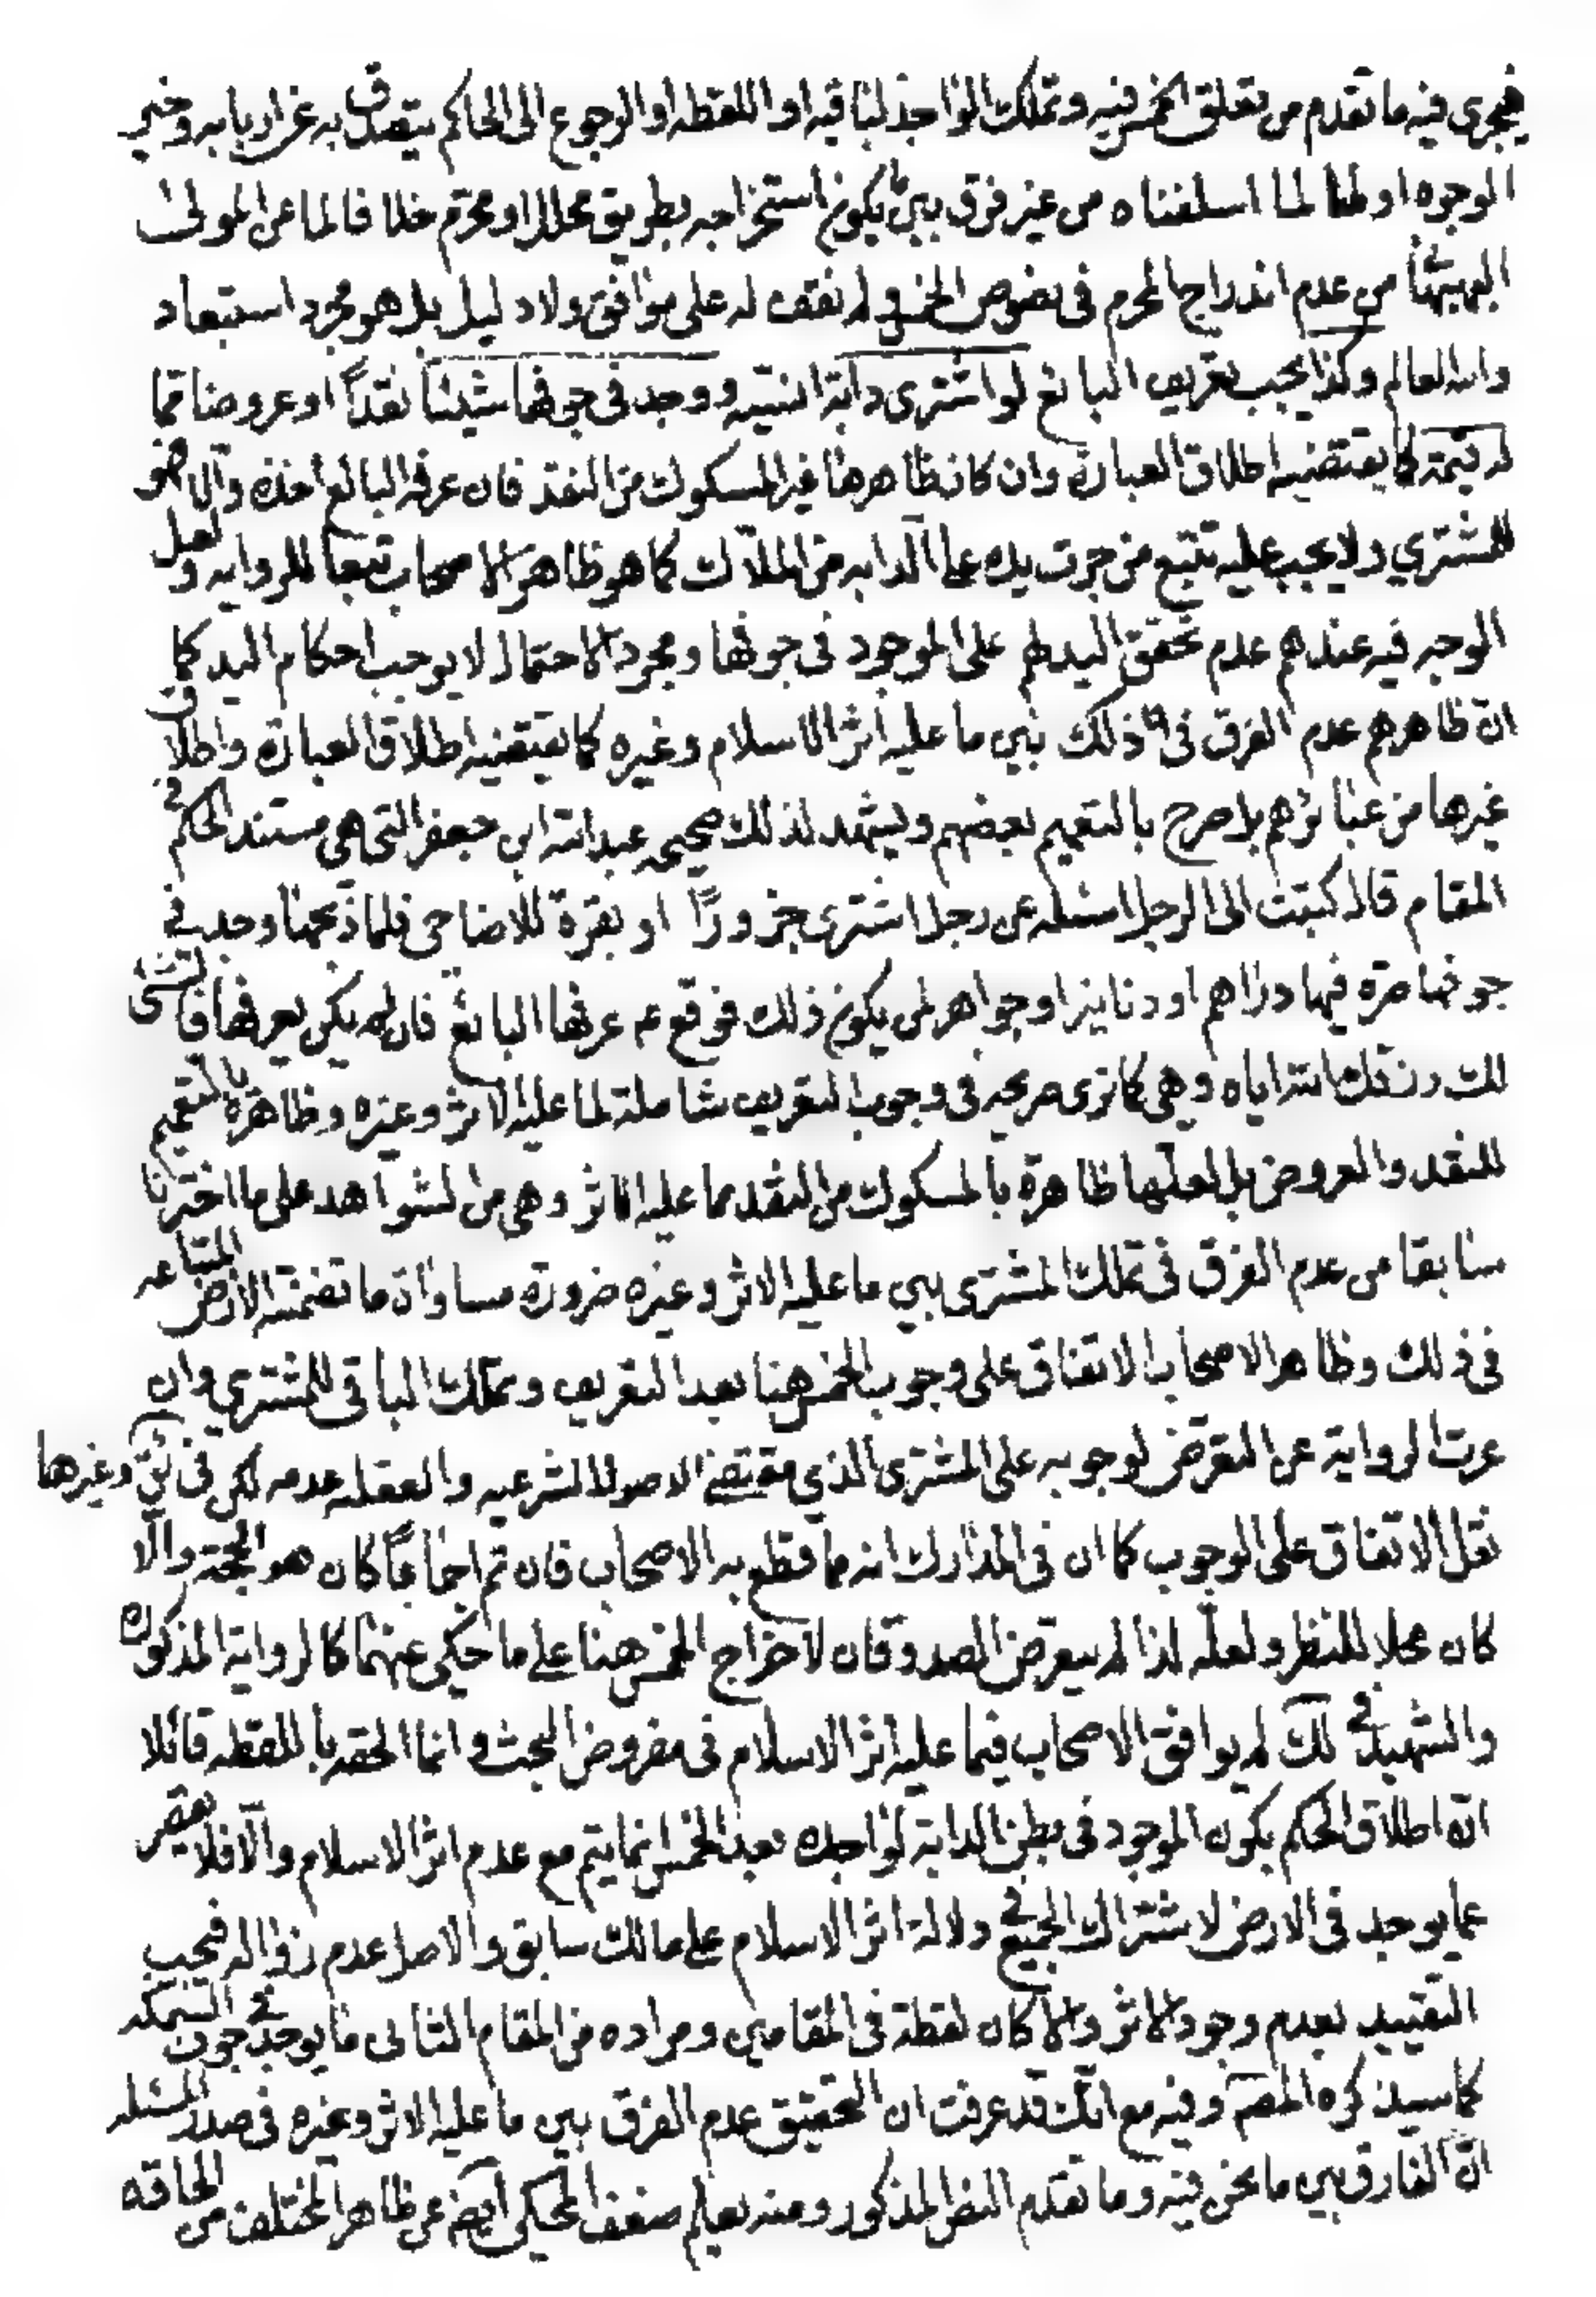 فيجرى فيه ما تقدم من تعلق الخمس فيه وتملك الواجد لباقيه او اللقطه او الرجوع الى الحاكم يتصدق به عن اربابه وخير
الوجوه اولها لما اسلفناه من غير فرق بين ان يكون استخراجه بطريق محلل او محرم خلافا لما عن المولى
البهبهانى من عدم اندراج المحرم فى نصوص الخمس ولم نقف له على موافق ولا دليل بل هو مجرد استبعاد
والله العالم وكذا يجب تعريف البائع لو اشترى دابة انسية ووجد فى جوفها شيئا نقدا او عروضا مما
له قيمة كما يقتضيه اطلاق العبارة وان كان ظاهرها غير المسكوك من النقد فان عرفه البائع اخذه والا فهو
للمشتري ولا يجب عليه تتبع من جرت يده على الدابه من الملاك كما هو ظاهر الاصحاب تبعا للروايه ولعل
الوجه فيه عندهم عدم تحقق اليد لهم على الموجود فى جوفها ومجرد الاحتمال لا يوجب احكام اليد كما
ان ظاهرهم عدم الفرق فى ذلك بين ما عليه اثر الاسلام وغيره كما يقتضيه اطلاق العبارة واطلاق
غيرها من عبائرهم بل صرح بالتعميم بعضهم ويشهد لذلك صحيحه عبدالله ابن جعفر التى هى مستند الحكم فى
المقام قال كتبت الى الرجل اسئله عن رجل اشترى جزورا او بقرة للاضاحى فلما ذبحها وجد فى
جوفها صرة فيها دراهم او دنانير او جواهر لمن يكون ذلك فوقع ع عرفها البائع فان لم يكن يعرفها فالشئ
لك رزقك الله اياه وهى كما ترى صريحه فى وجوب التعريف شاملة لما عليه الاثر وغيره وظاهرة بالتعميم
للنقد والعروض بل لعلها ظاهرة بالمسكوك من النقد مما عليه الاثر وهى من الشواهد على ما اخترنا
سابقا من عدم الفرق فى تملك المشترى بين ما عليه الاثر وغيره ضرورة مساواة ما تضمنته الارض المبتاعه
فى ذلك وظاهر الاصحاب الاتفاق على وجوب الخمس هنا بعد التعريف وتملك الباقى للمشتري وان
عرت الرواية عن التعرض لوجوبه على المشترى الذي مقتضى الاصول الشرعيه والعقليه عدمه لكن فى وغيرها
نقل الاتفاق على الوجوب كما ان فى المدارك انه مما قطع به الاصحاب فان تم اجماعا كان هو الحجة والا
كان محلا للنظر ولعله لذا لم يتعرض الصدوقان لاخراج الخمس هنا على ما حكى عنهما كالرواية المذكوره
والشهيد فى لك لم يوافق الاصحاب فيما عليه اثر الاسلام فى مفروض البحث وانما الحقه باللقطه قائلا
ان اطلاق الحكم بكون الموجود فى بطن الدابة لواجده بعد الخمس انما يتم مع عدم اثر الاسلام والا فلا يقصر
عما يوجد فى الارض لاشتراك الجميع فى دلالة اثر الاسلام على مالك سابق والاصل عدم زواله فيجب
التقييد بعدم وجود الاثر والا كان لقطة فى المقامين ومراده من المقام الثانى ما يوجد فى جوف السمكه
كما سيذكره المصم وفيه مع انك قد عرفت ان التحقيق عدم الفرق بين ما عليه الاثر وغيره فى صدر المسئله
ان الفارق بين ما نحن فيه وما تقدم النص المذكور ومنه يعلم ضعف المحكى ايضم عن ظاهر المختلف من الحاقه